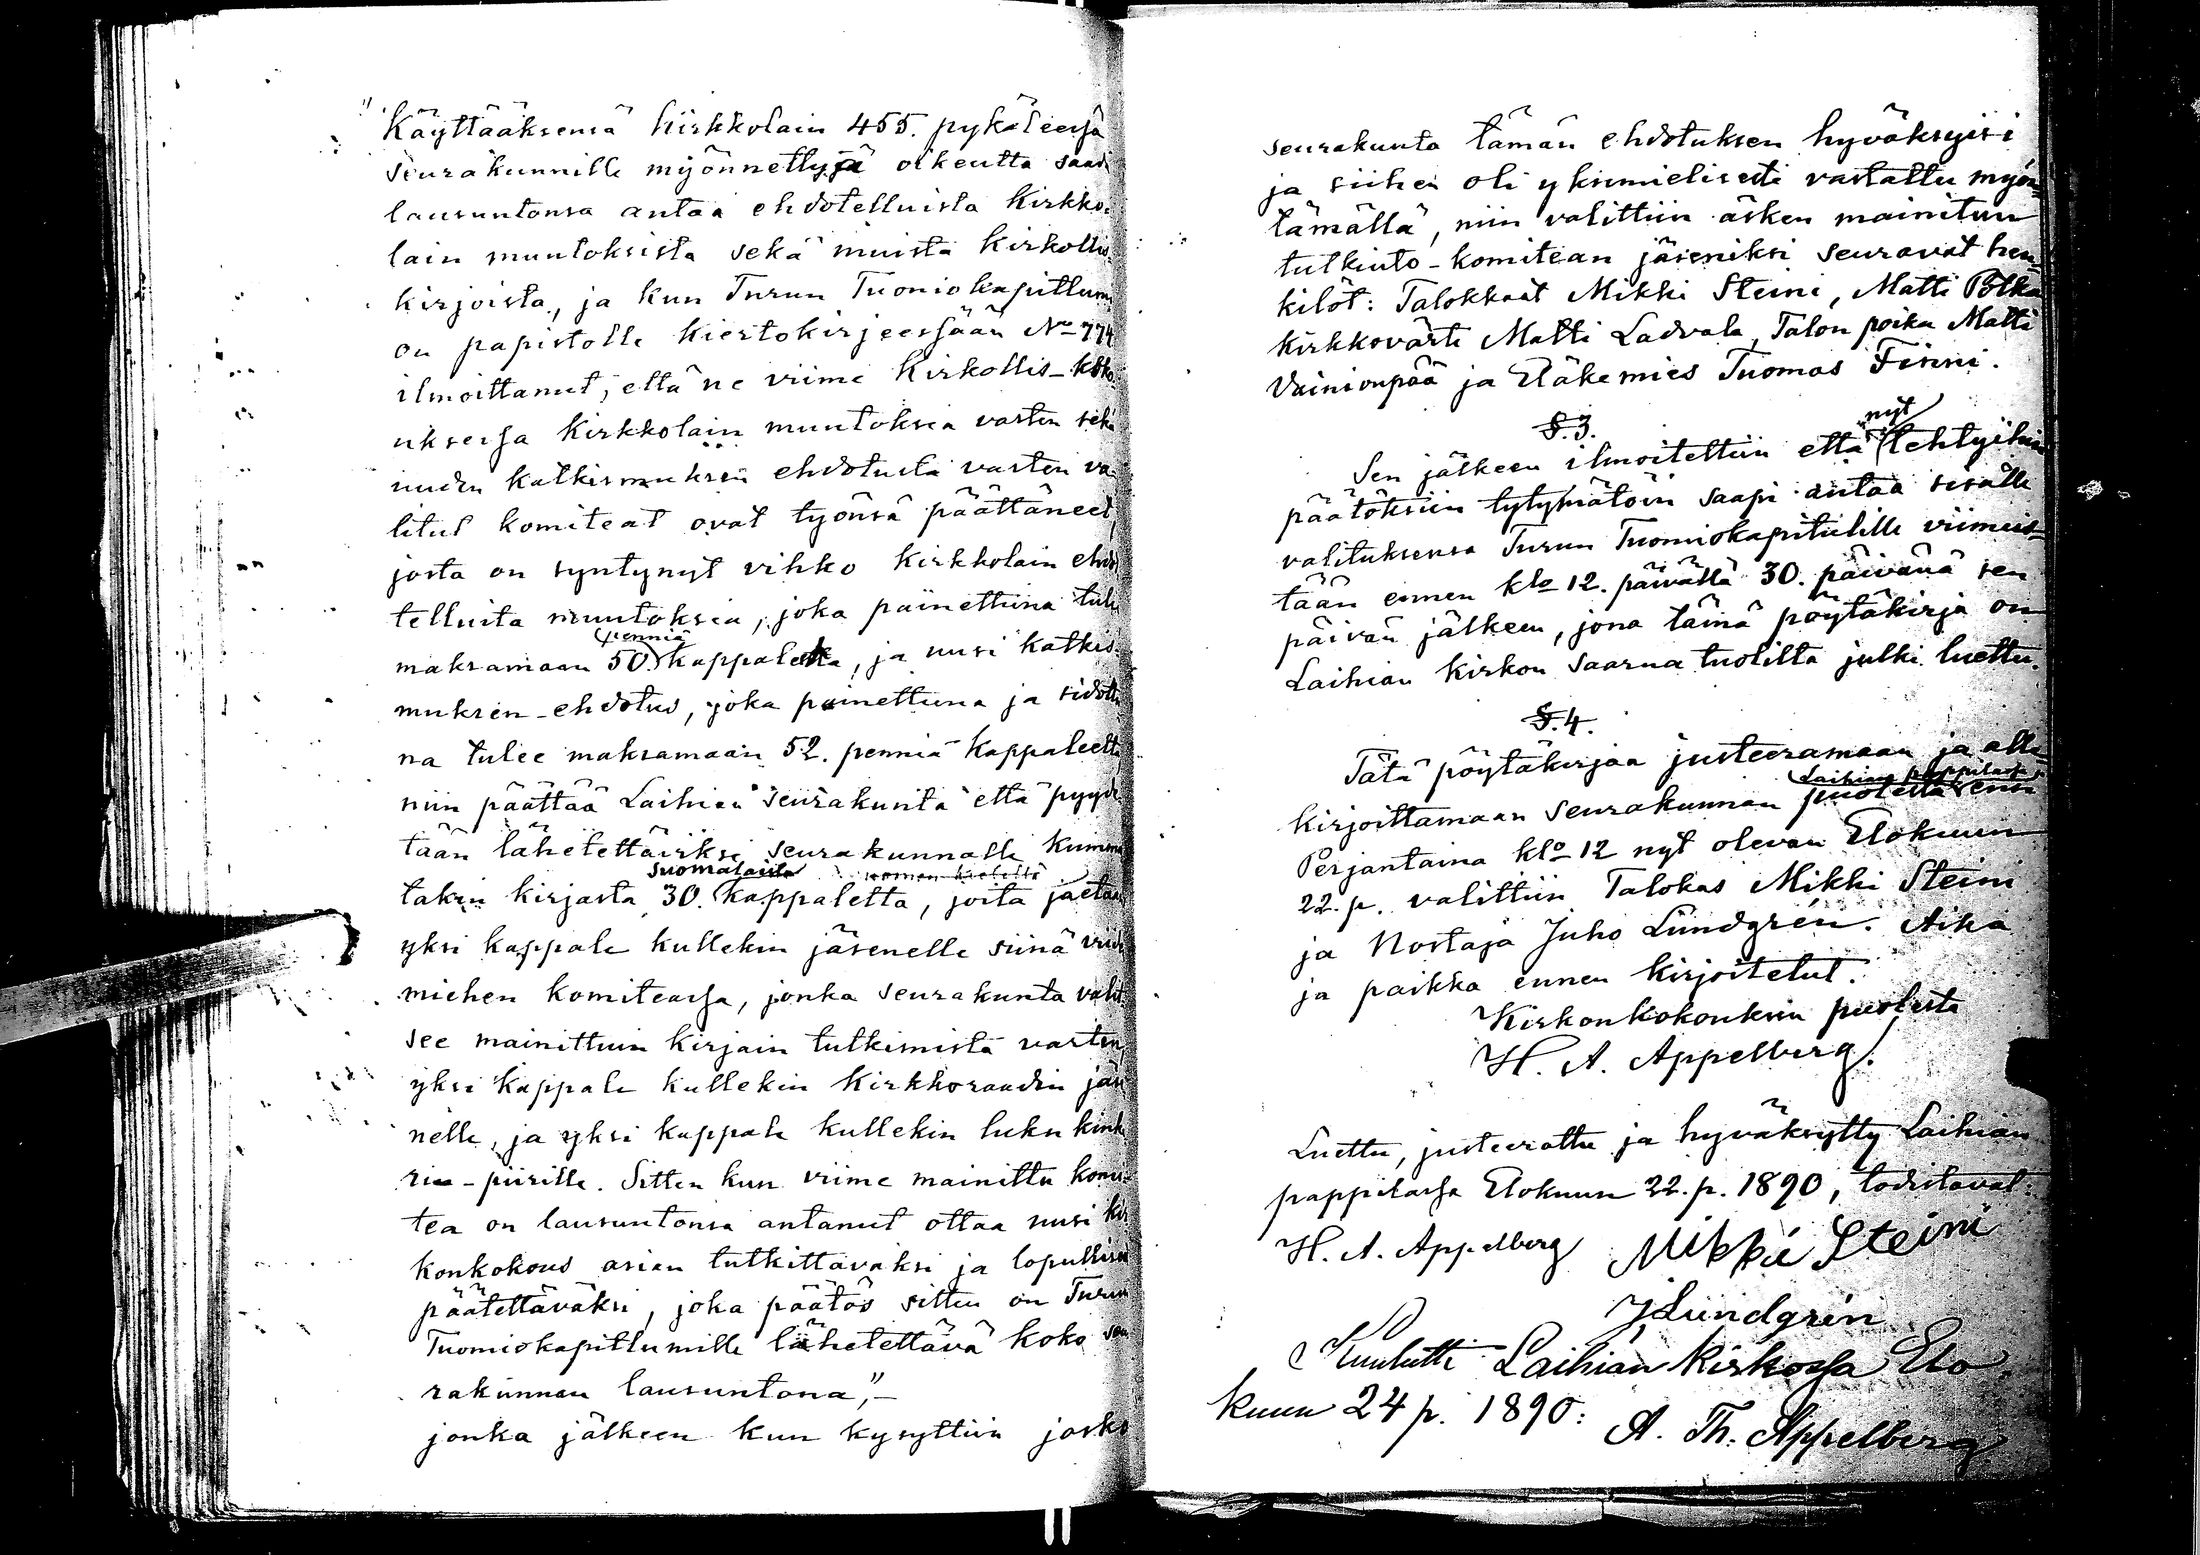 "Käyttääksensä kirkkolain 455. pykäleessä
seurakunnille myönnettyjä oikeutta saada
lausuntonsa antaa ehdotelluista Kirkko-
lain muutoksista sekä muista Kirkollis-
kirjoista, ja kun Turun Tuomiokapitlumi
on papistolle kiertokirjeessään No 774
ilmoittanut, että ne viime Kirkollis-koko-
uksessa Kirkkolain muutoksia varten sekä
uuden katkismuksen ehdotusta varten va-
litut komiteat ovat työnsä päättäneet,
josta on syntynyt vihko Kirkkolain ehdo-
telluista muutoksia, joka painettuna tulee
penniä
maksamaan 50. kappaletta, ja uusi katkis-
muksen-ehdotus, joka painettuna ja sidottu-
na tulee maksamaan 52. penniä kappaleetta
niin päättää Laihian seurakunta että pyyde-
tään lähetettäviksi seurakunnalle kumma-
suomalaista suomen kielellä
takin kirjasta 30. kappaletta, joita jaetaan
yksi kappale kullekin jäsenelle siinä viide-
miehen komiteassa, jonka seurakunta valit-
see mainittuin kirjain tutkimista varten,
yksi kappale kullekin Kirkkoraadin jäse-
nelle, ja yksi kappale kullekin luku kinke-
riu-piirille. Sitten kun viime mainittu komi-
tea on lausuntonsa antanut ottaa uusi kir-
konkokous asian tutkittavaksi ja lopullisesti
päätettäväksi, joka päätös sitten on Turun
Tuomiokapitlumille lähetettävä koko seu-
rakunnan lausuntona",-
jonka jälkeen kun kysyttiin josko
seurakunta tämän ehdotuksen hyväksyisi
ja siihen oli yksimielisesti vastattu myön-
tämällä, niin valittiin äsken mainitun
tutkinto-komitean jäseniksi seuravat hen-
kilöt: Talokkaat Mikki Steini, Matti Pölkä
kirkkovärti Matti Ladvala, Talon poika Matti
Vainionpää ja Eläkemies Tuomas Finni.
§.3.
nyt
Sen jälkeen ilmoitettiin että tehtyihin
päätöksiin tytymätöin saapi antaa sisälle
valituksensa Turun Tuomiokapitulille viimeis-
tään ennen klo 12. päivällä 30. päivänä sen
päivän jälkeen, jona tämä pöytäkirja on
Laihian kirkon saarnatuolilta julki luettu.
§.4.
Tätä pöytäkirjaa justeeramaan ja alle-
Laihian pappilassa
kirjoittamaan seurakunnan puolesta ensi
Perjantaina klo 12 nyt olevan Elokuun
22. p. valittiin Talokas Mikki Steini
ja Nostaja Juho Lundgrén. Aika
ja paikka ennen kirjoitetut.
Kirkonkokouksen puolesta
H. A. Appelberg.
Luettu, justeerattu ja hyväksytty Laihian
pappilassa Elokuun 22. p. 1890, todistavat:
H. A. Appelberg Mikki Steini
J Lundgrén
Kuulutti Laihian Kirkossa Elo-
kuun 24 p. 1890:
A. Th. Appelberg